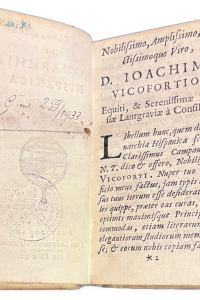 ARCHI
HISPANICA
Inv. 257/1933
Nobilissimo, Amplissimo,
ctissimoque Viro,
D. IOACHIM
VICOFORTIO
Equiti, & Serenissimæ
siæ Lantgraviæ à Consil
LIbellum hunc, quem d
narchia Hispanica sc
Clarissimus Campan
N. T. dico & offero, Nobili
VICOFORTI. Nuper tuo
ficio meus factus, jam typis
sus tuus iterum esse desiderat
les quippe, præter eas curas,
optimis maximisque Princip
commodas, etiam literarum
elegantiorum studiorum mem
si; & eorum nobis copiam fa
*2